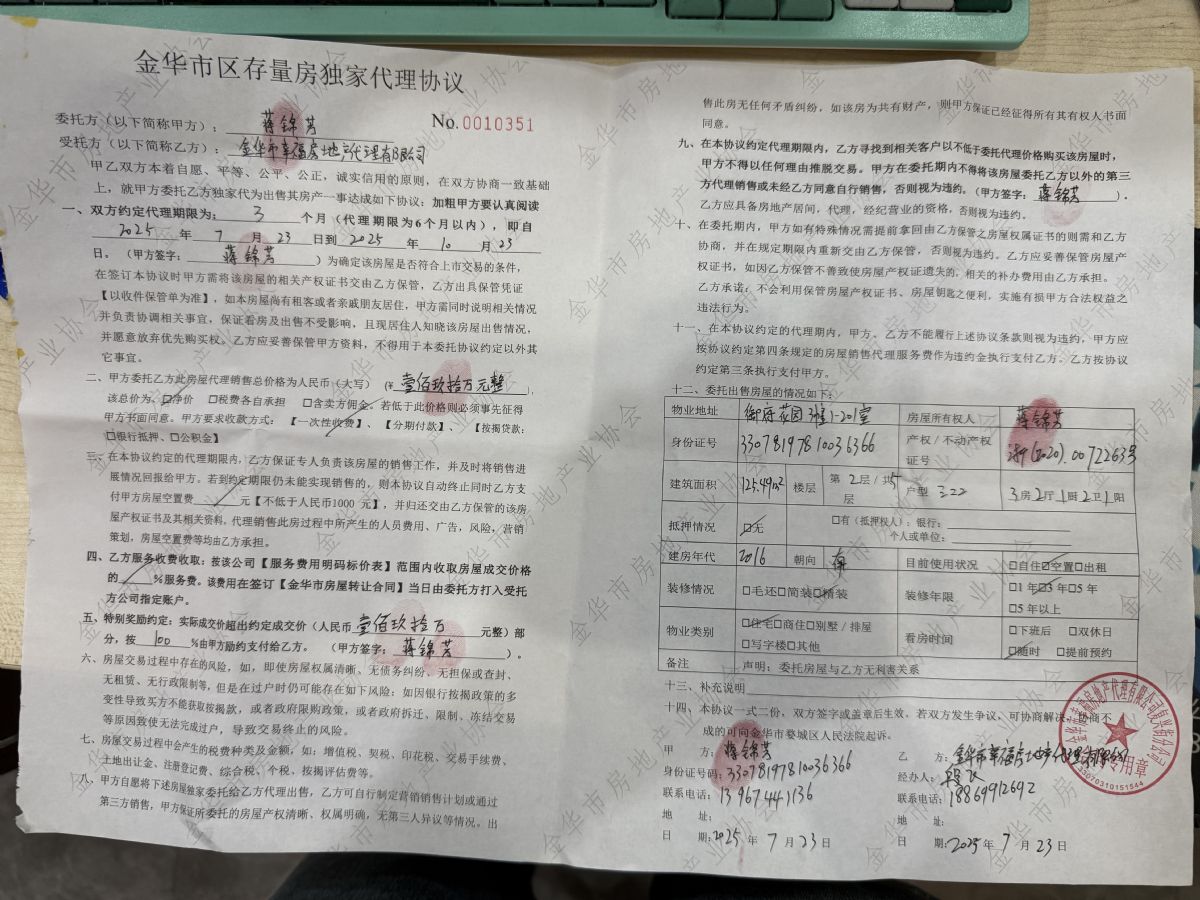 金华市区存量房独家代理协议
委托方（以下简称甲方）：蒋锦芳
No.0010351
受托方（以下简称乙方）：金华市幸福房地产代理有限公司
甲乙双方本着自愿、平等、公平、公正，诚实信用的原则，在双方协商一致基础
上，就甲方委托乙方独家代为出售其房产一事达成如下协议：加粗甲方要认真阅读
一、双方约定代理期限为：3个月（代理期限为6个月以内），即自
2025年7月23日到2025年10月23
日。（甲方签字：蒋锦芳）为确定该房屋是否符合上市交易的条件，
在签订本协议时甲方需将该房屋的相关产权证书交由乙方保管，乙方出具保管凭证
【以收件保管单为准】，如本房屋尚有租客或者亲戚朋友居住，甲方需同时说明相关情况
并负责协调相关事宜，保证看房及出售不受影响，且现居住人知晓该房屋出售情况，
并愿意放弃优先购买权。乙方应妥善保管甲方资料，不得用于本委托协议约定以外其
它事宜。
二、甲方委托乙方此房屋代理销售总价格为人民币（大写）（¥壹佰玖拾万元整），
该总价为：□净价 □税费各自承担 □含卖方佣金。若低于此价格则必须事先征得
甲方书面同意。甲方要求收款方式：【一次性收费】、【分期付款】、【按揭贷款：
□银行抵押、□公积金】
三、在本协议约定的代理期限内，乙方保证专人负责该房屋的销售工作，并及时将销售进
展情况回报给甲方。若到约定期限仍未能实现销售的，则本协议自动终止同时乙方支
付甲方房屋空置费元【不低于人民币1000 元】，并归还交由乙方保管的该房
屋产权证书及其相关资料，代理销售此房过程中所产生的人员费用、广告，风险，营销
策划，房屋空置费等均由乙方承担。
四、乙方服务收费收取：按该公司【服务费用明码标价表】范围内收取房屋成交价格
的%服务费。该费用在签订【金华市房屋转让合同】当日由委托方打入受托
方公司指定账户。
五、特别奖励约定：实际成交价超出约定成交价（人民币壹佰玖拾万元整）部
分，按100%由甲方励约支付给乙方。（甲方签字：蒋锦芳）。
六、房屋交易过程中存在的风险，如，即使房屋权属清晰、无债务纠纷、无担保或查封、
无租赁、无行政限制等，但是在过户时仍可能存在如下风险：如因银行按揭政策的多
变性导致买方不能获取按揭款，或者政府限购政策，或者政府拆迁、限制、冻结交易
等原因致使无法完成过户，导致交易终止的风险。
七、房屋交易过程中会产生的税费种类及金额：如：增值税、契税、印花税、交易手续费、
土地出让金、注册登记费、综合税、个税、按揭评估费等。
八、甲方自愿将下述房屋独家委托给乙方代理出售，乙方可自行制定营销销售计划或通过
第三方销售，甲方保证所委托的房屋产权清晰、权属明确，无第三人异议等情况。出
售此房无任何矛盾纠纷，如该房为共有财产，则甲方保证已经征得所有其有权人书面
同意。
九、在本协议约定代理期限内，乙方寻找到相关客户以不低于委托代理价格购买该房屋时，
甲方不得以任何理由推脱交易。甲方在委托期内不得将该房屋委托乙方以外的第三
方代理销售或未经乙方同意自行销售，否则视为违约。（甲方签字：蒋锦芳）.
乙方应具备房地产居间，代理，经纪营业的资格，否则视为违约。
十、在委托期内，甲方如有特殊情况需提前拿回由乙方保管之房屋权属证书的则需和乙方
协商，并在规定期限内重新交由乙方保管，否则视为违约。乙方应妥善保管房屋产
权证书，如因乙方保管不善致使房屋产权证遗失的，相关的补办费用由乙方承担。
乙方承诺：不会利用保管房屋产权证书、房屋钥匙之便利，实施有损甲方合法权益之
违法行为。
十一、在本协议约定的代理期内，甲方、乙方不能履行上述协议条款则视为违约，甲方应
按协议约定第四条规定的房屋销售代理服务费作为违约金执行支付乙方。乙方按协议
约定第三条执行支付甲方。
十二、委托出售房屋的情况如下：
物业地址 御府花园3幢1-201室 房屋所有权人 蒋锦芳
身份证号 330781978 10036366 产权/不动产权证号 浙(2020).0072263号
建筑面积 125.49m² 楼层 第2层/共5层 户型 三二二 3房2厅1厨2卫1阳
抵押情况 □无 □有（抵押权人）：银行：
个人或单位：
建房年代 2016 朝向 南 目前使用状况 □自住□空置□出租
装修情况 □毛还□简装□精装 装修年限 □1年□3年□5年
□5年以上
物业类别 □住宅□商住□别墅/排屋
□写字楼□其他 看房时间 □下班后 □双休日
□随时 □提前预约
备注 声明：委托房屋与乙方无利害关系
十三、补充说明
十四、本协议一式二份，双方签字或盖章后生效，若双方发生争议，可协商解决，协商不
成的可向金华市婺城区人民法院起诉。
甲方：蒋锦芳
身份证号码：3307819781003 6366
联系电话：13967441136
地址：
日期：2025年7月23日
乙方：金华市幸福房地产代理有限公司
经办人：
联系电话：18869912692
地址：
日期：2025年7月23日
33070310151544